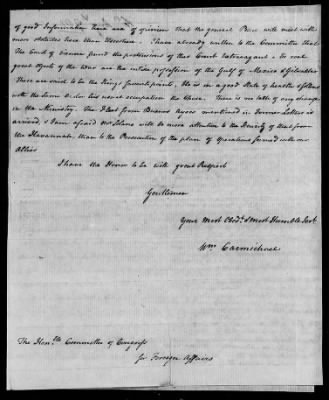 of good Information here are of opinion that the general Peace will meet with
more obstacles here than elsewhere. I have already written to the Committee that
The Court of Vienna found the pretensions of this Court extravagant - The real
great objects of the King are the entire possession of the Gulf of Mexico & Gibraltar
These are said to be the King's favorite points, He is in a good State of health & follows
with the same Ardor his usual occupation the Chace. There is no talk of any change
in the Ministry. The Fleet from Buenos Ayres mentioned in former Letters is
arrived, & I am afraid Mr Solano will do more attention to the Security of that from
the Havannah, than to the Prosecution of the plan of Operations formed with our
Allies
I have the Honor to be with great Respect
Gentlemen
Your Most Obedt. & Most Humble Sert
Wm Carmichael
The Honble Committee of Congress
for Foreign Affairs